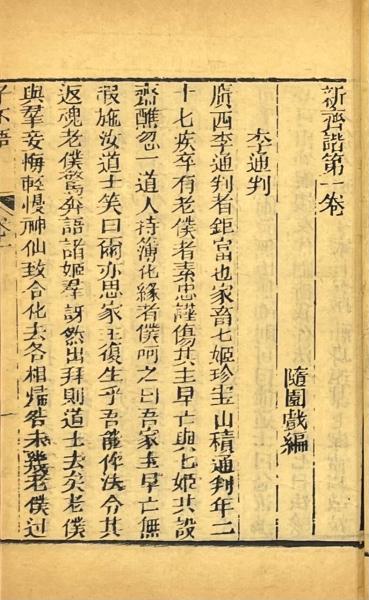 新齊諧第一卷
隨園戲編
李通判
廣西李通判者鉅富也家畜七姬珍寳山積通判年二
十七疾卒有老僕者素忠謹傷其主早亡與七姬共設
齋醮忽一道人持簿化緣者僕呵之曰吾家主早亡無
暇施汝道士笑曰爾亦思家主復生乎吾能作法令其
返魂老僕驚奔語諸姬羣訝然出拜則道士去矣老僕
與羣妾悔輕慢神仙致令化去各相歸咎未幾老僕過
子不語